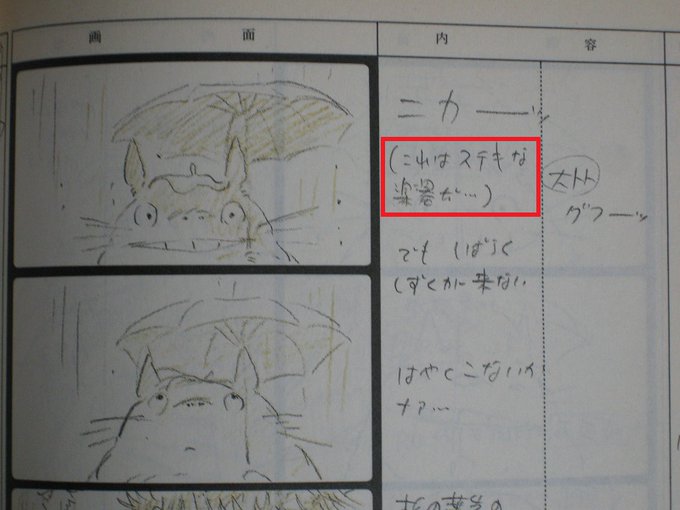 画面
内容
ニカーッ
(これはステキな
楽器だ…)
大トト
グフーッ
でもしばらく
しずくが来ない
はやくこないか
ナァ…